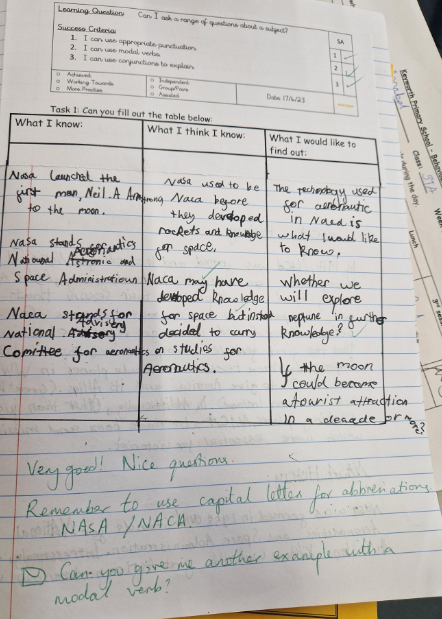 Learning Question: Can I ask a range of questions about a subject?
Success Criteria:
1. I can use appropriate punctuation.
2. I can use modal verbs.
3. I can use conjunctions to explain.
SA
1
2
3
Achieved
Working Towards
More Practice
Independent
Group/Pair
Assisted
Date 17/4/23
Task 1: Can you fill out the table below:
What I know:
Nasa launched the
first man, Neil. A Armstrong
to the moon.
Nasa stands for
National Aeronautics and
Space Administration
Naca stands for
National advisory
Comittee for aeronautics
What I think I know:
Nasa used to be
Naca before
they developed
rockets and knowledge
for space.
Naca may have
developed knowledge
for space but instead
decided to carry
on studies for
Aeronautics.
What I would like to
find out:
The technology used
for aeronautic
in Naca is
what I would like
to know.
whether we
will explore
neptune in further
knowledge?
If the moon
could become
a tourist attraction
in a decade or more?
Very good! Nice questions.
Remember to use capital letter for abbreviations
NASA / NACA
Can you give me another example with a
modal verb?
Keyworth Primary School
Class
during the day
Lunch